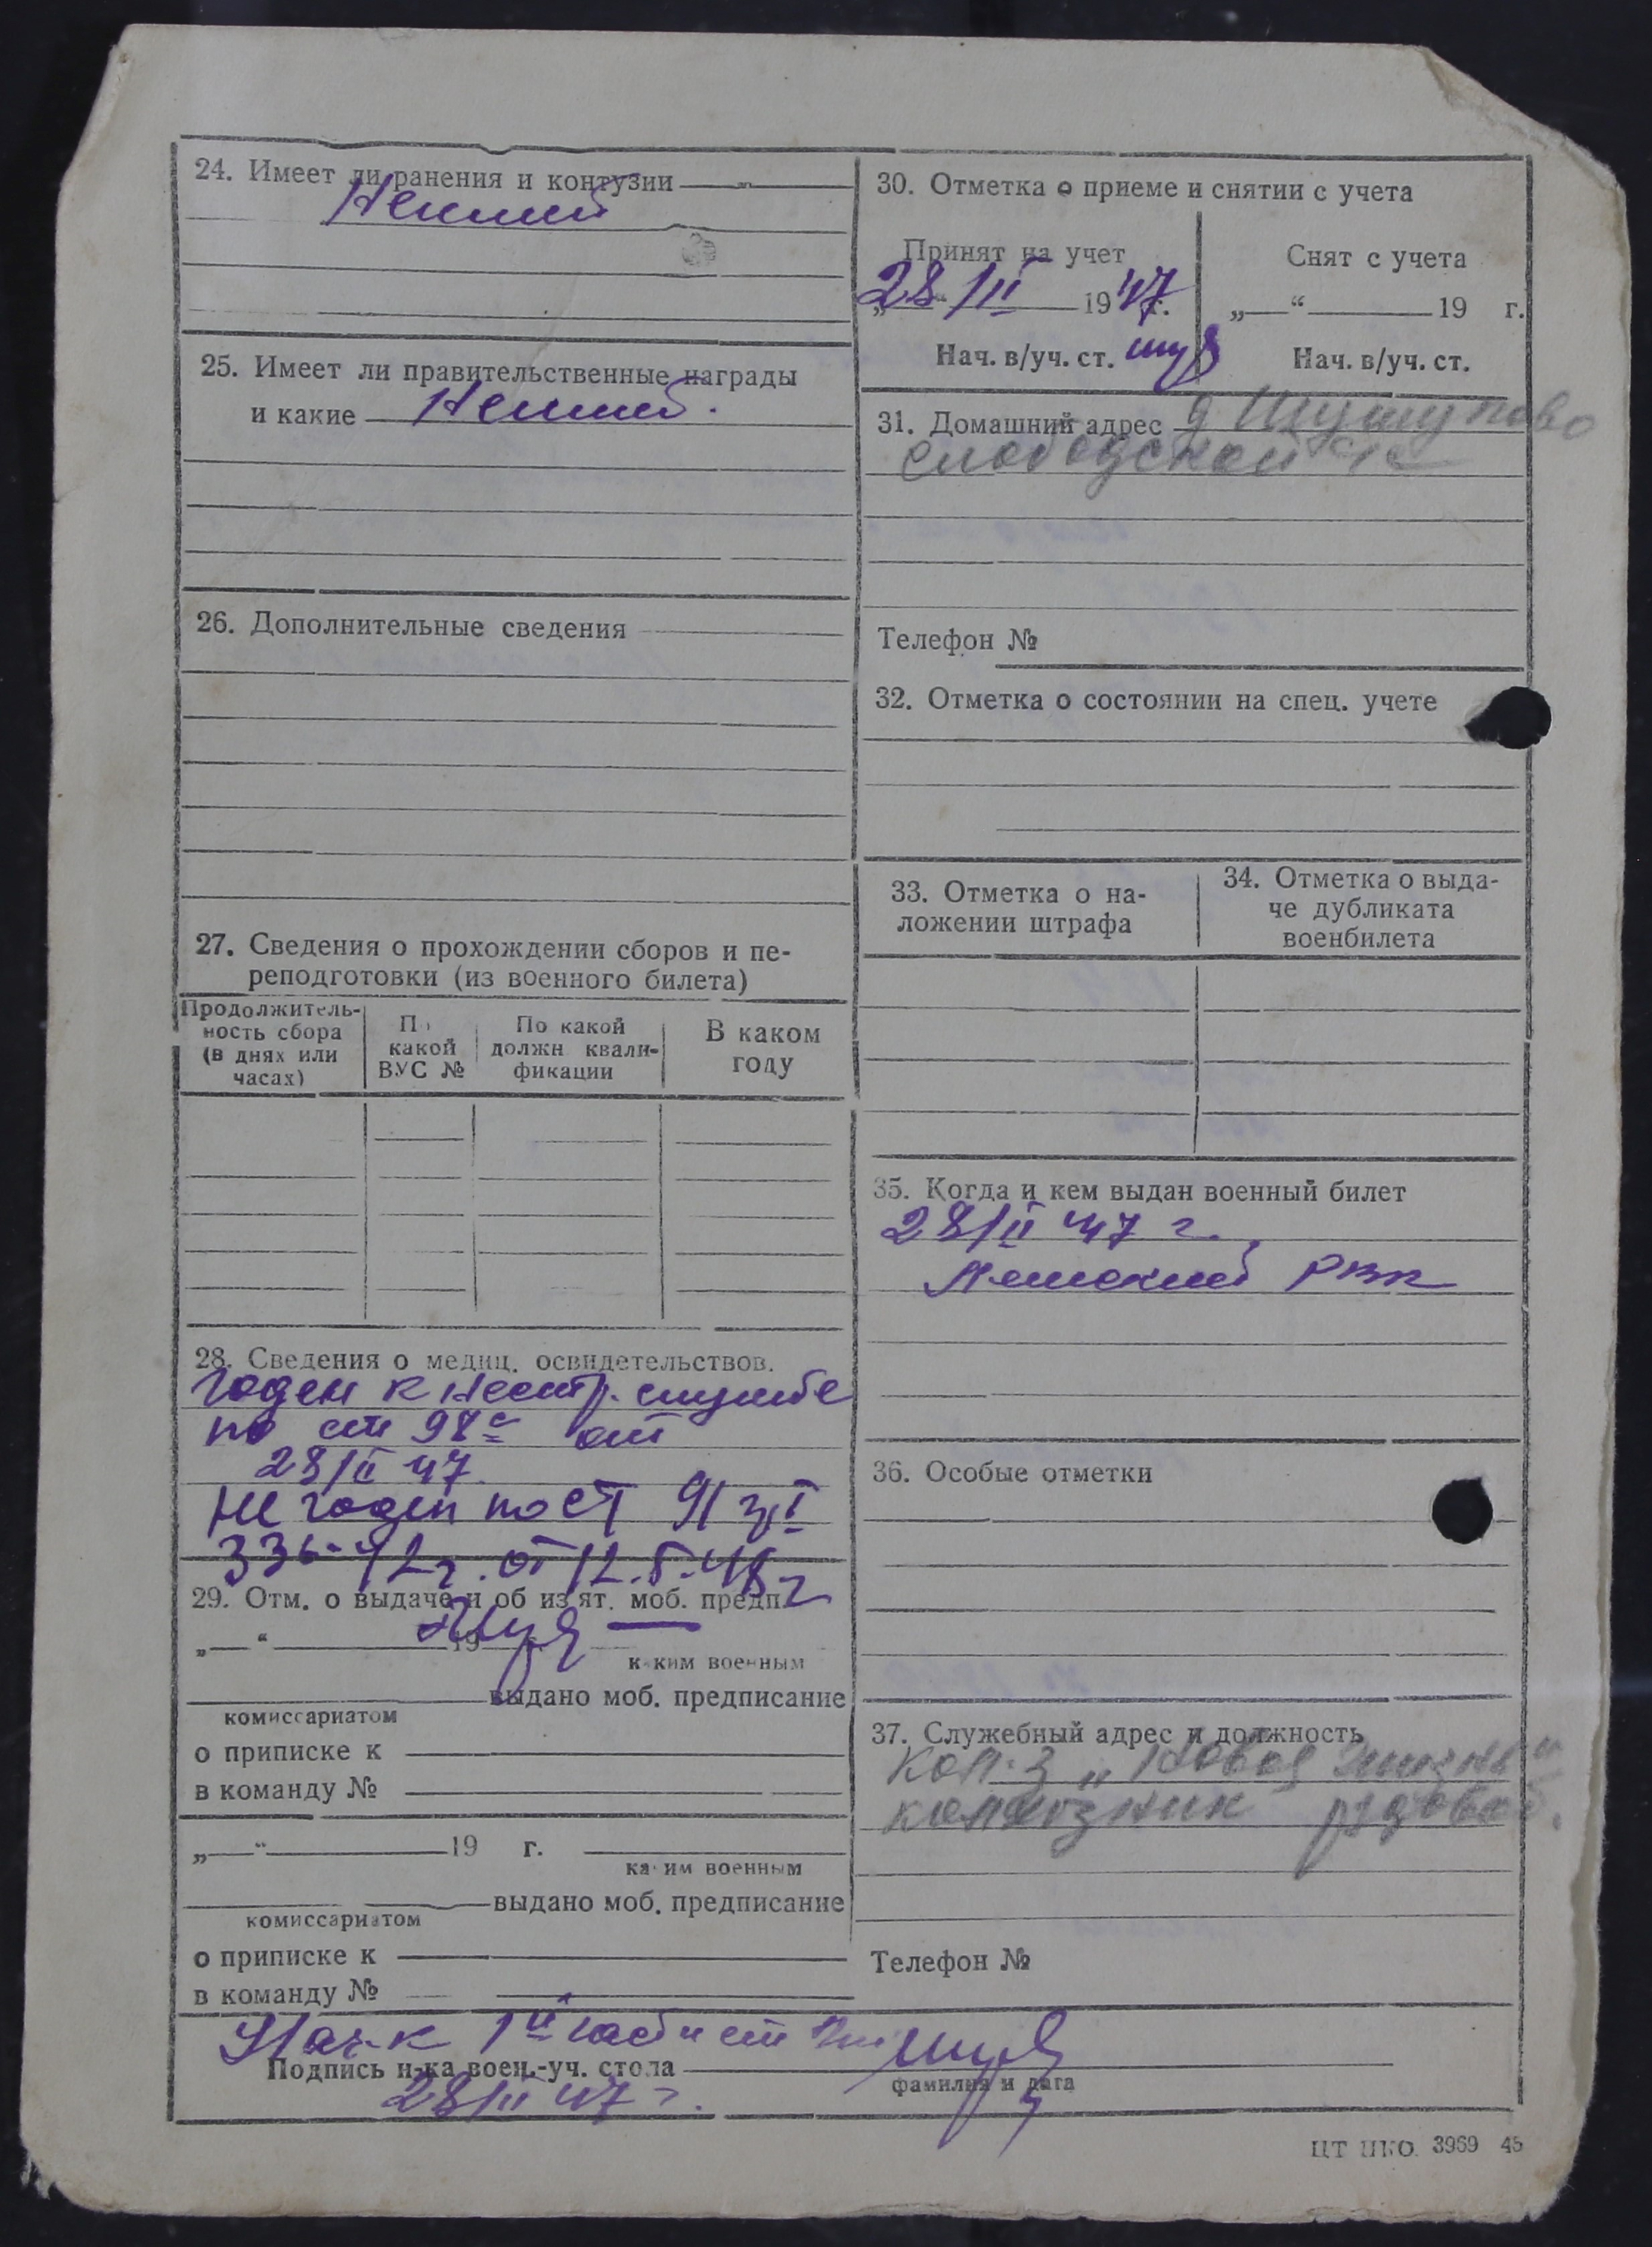 24. Имеет ли ранения и контузии
25. Имеет ли правительственные награды
и какие
26. Дополнительные сведения
27. Сведения о прохождении сборов и пе-
реподготовки (из военного билета)
Продолжитель-
ность сбора
(в днях или
часах)
По
какой
ВУС №
По какой
должн квали-
фикации
В каком
году
28. Сведения о медиц. освидетельствов.
Годен к нестр. службе
по ст 98 от
28/II 47
Не годен по ст 91 гр I
336-42г. от 12.5.48г
29. Отм. о выдаче и об из'ят. моб. предп.
„ “ 19
каким военным
выдано моб. предписание
комиссариатом
о приписке к
в команду №
„ “ 19 г.
каким военным
выдано моб. предписание
комиссариатом
о приписке к
в команду №
30. Отметка о приеме и снятии с учета
Принят на учет
28/II 1947 г.
Нач. в/уч. ст.
Снят с учета
„ “ 19 г.
Нач. в/уч. ст.
31. Домашний адрес д Шушпово
Слободской с/с
Телефон №
32. Отметка о состоянии на спец. учете
33. Отметка о на-
ложении штрафа
34. Отметка о выда-
че дубликата
военбилета
35. Когда и кем выдан военный билет
28/II 47 г.
РВК
36. Особые отметки
37. Служебный адрес и должность
Кол-з „Новая жизнь“
колхозник рядовой.
Телефон №
Нач-к 1й части
Подпись н-ка воен.-уч. стола
фамилия и дата
28/II 47 г.
ЦТ НКО 3969 45